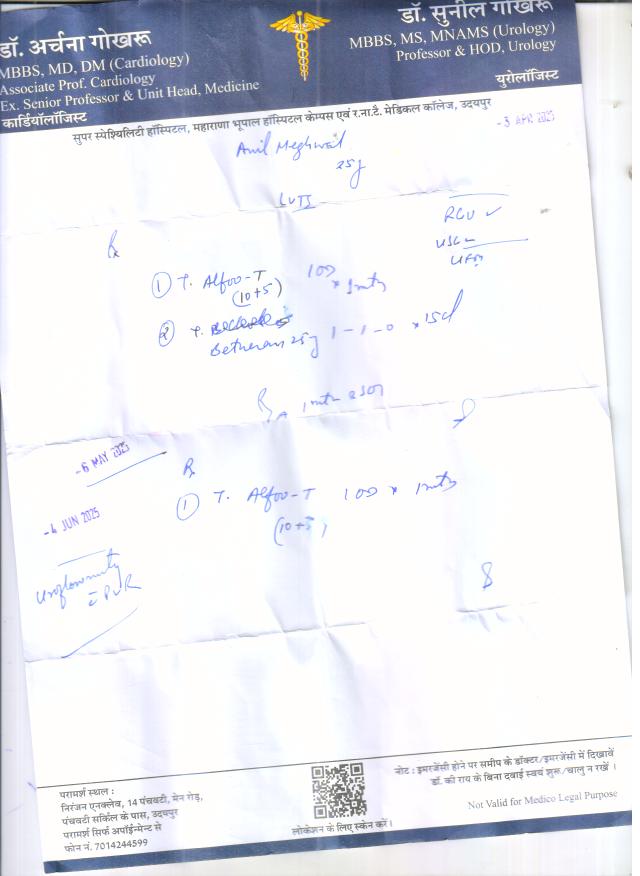 डॉ. अर्चना गोखरू
MBBS, MD, DM (Cardiology)
Associate Prof. Cardiology
Ex. Senior Professor & Unit Head, Medicine
कार्डियोलॉजिस्ट
डॉ. सुनील गोखरू
MBBS, MS, MNAMS (Urology)
Professor & HOD, Urology
युरोलॉजिस्ट
सुपर स्पेश्यिलिटी हॉस्पिटल, महाराणा भूपाल हॉस्पिटल केम्पस एवं र.ना.टै. मेडिकल कॉलेज, उदयपुर
- 3 APR 2025
Anil Meghwal
25y
LUTS
RGU ✓
USG
UFM
Rx
① T. Alfoo-T 10D x 1mth
(10+5)
② T.
25g 1-1-0 x 15d
- 6 MAY 2025
Rx
① T. Alfoo-T 10D x 1mth
(10+5)
- 4 JUN 2025
Uroflowmetry
PVR
परामर्श स्थल :
निरंजन एनक्लेव, 14 पंचवटी, मेन रोड़,
पंचवटी सर्किल के पास, उदयपुर
परामर्श सिर्फ अपॉईन्मेन्ट से
फोन नं. 7014244599
लोकेशन के लिए स्केन करें।
नोट : इमरजेंसी होने पर समीप के डॉक्टर/इमरजेंसी में दिखावें
डॉ. की राय के बिना दवाई स्वयं शुरू/चालु न रखें ।
Not Valid for Medico Legal Purpose